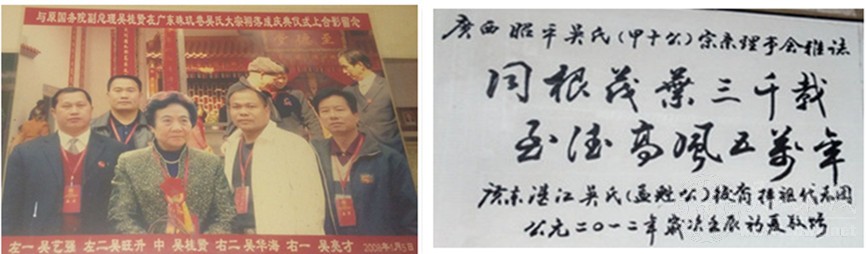 与原国务院副总理吴桂贤在广东珠玑巷吴氏大宗祠落成庆典仪式上合影留念
左一 吴艺强 左二 吴旺升 中 吴桂贤 右二 吴华海 右一 吴亮才
廣西昭平吴氏(甲十公)宗亲理事会雅誌
同根茂葉三千载
至德高風五萬年
廣东湛江吴氏(孟魁公)後裔拜祖代表团
公元二〇一二年歲次壬辰初夏敬贈